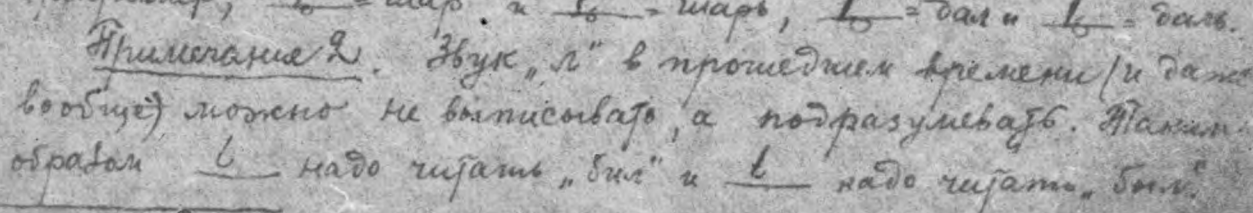 = шар и = шарь, = дал и = даль.
Примечание 2. Звук „л" в прошедшем времени (и даже
вообще) можно не выписывать, а подразумевать. Таким
образом надо читать „бил" и надо читать „был".